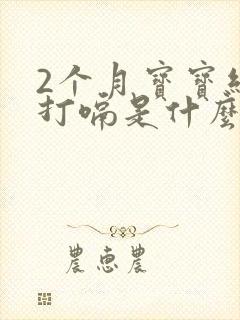 2个月寶寶
打嗝是什麼
農惠農